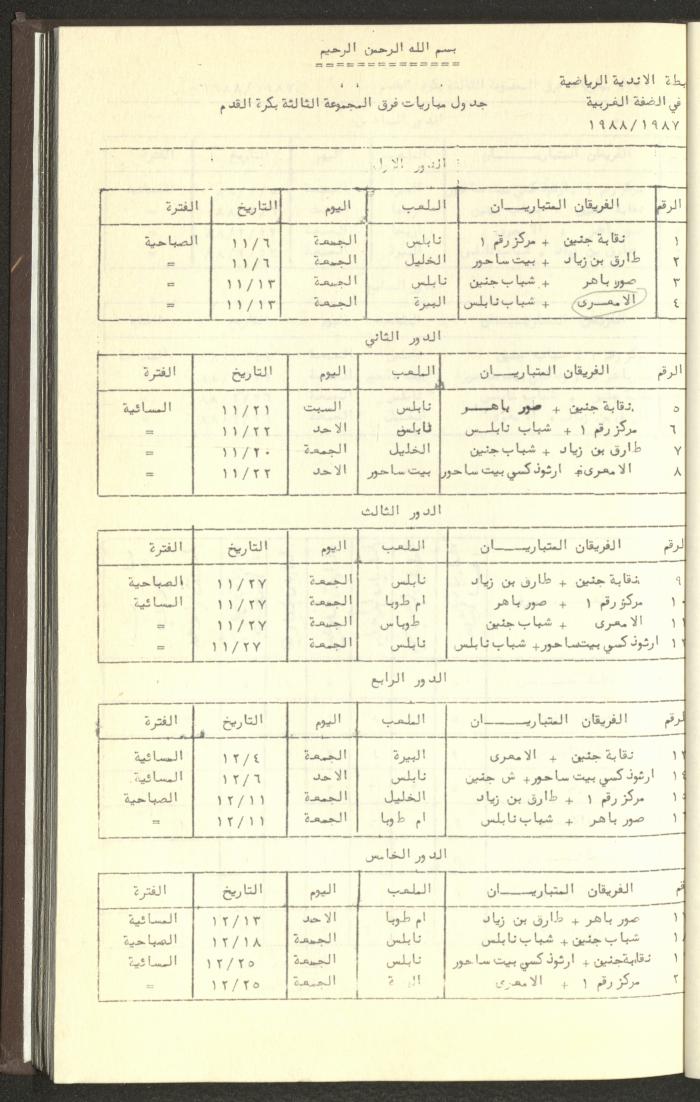 بسم الله الرحمن الرحيم
بطة الاندية الرياضية
في الضفة الغربية
جدول مباريات فرق المجموعة الثالثة بكرة القدم
١٩٨٨/١٩٨٧
الدور الاول
الرقم الفريقان المتباريـــــان الملعب اليوم التاريخ الفترة
١ نقابة جنين + مركز رقم ١ نابلس الجمعة ١١/٦ الصباحية
٢ طارق بن زياد + بيت ساحور الخليل الجمعة ١١/٦ =
٣ صور باهر + شباب جنين نابلس الجمعة ١١/١٣ =
٤ الامعـرى + شباب نابلس البيرة الجمعة ١١/١٣ =
الدور الثاني
الرقم الفريقان المتباريـــــان الملعب اليوم التاريخ الفترة
٥ نقابة جنين + صور باهــر نابلس السبت ١١/٢١ المسائية
٦ مركز رقم ١ + شباب نابلـس نابلس الاحد ١١/٢٢ =
٧ طارق بن زياد + شباب جنين الخليل الجمعة ١١/٢٠ =
٨ الامعرى + ارثوذكسي بيت ساحور بيت ساحور الاحد ١١/٢٢ =
الدور الثالث
لرقم الفريقان المتباريـــــان الملعب اليوم التاريخ الفترة
٩ نقابة جنين + طارق بن زياد نابلس الجمعة ١١/٢٧ الصباحية
١٠ مركز رقم ١ + صور باهر ام طوبا الجمعة ١١/٢٧ المسائية
١١ الامعرى + شباب جنين طوباس الجمعة ١١/٢٧ =
١٢ ارثوذكسي بيت ساحور + شباب نابلس نابلس الجمعة ١١/٢٧ =
الدور الرابع
لرقم الفريقان المتباريـــــان الملعب اليوم التاريخ الفترة
١٣ نقابة جنين + الامعرى البيرة الجمعة ١٢/٤ المسائية
١٤ ارثوذكسي بيت ساحور + ش جنين نابلس الاحد ١٢/٦ المسائية
١٥ مركز رقم ١ + طارق بن زياد الخليل الجمعة ١٢/١١ الصباحية
١٦ صور باهر + شباب نابلس ام طوبا الجمعة ١٢/١١ =
الدور الخامس
قم الفريقان المتباريـــــان الملعب اليوم التاريخ الفترة
١ صور باهر + طارق بن زياد ام طوبا الاحد ١٢/١٣ المسائية
١ شباب جنين + شباب نابلس نابلس الجمعة ١٢/١٨ الصباحية
١ نقابة جنين + ارثوذكسي بيت ساحور نابلس الجمعة ١٢/٢٥ المسائية
٢ مركز رقم ١ + الامعرى الجمعة ١٢/٢٥ =